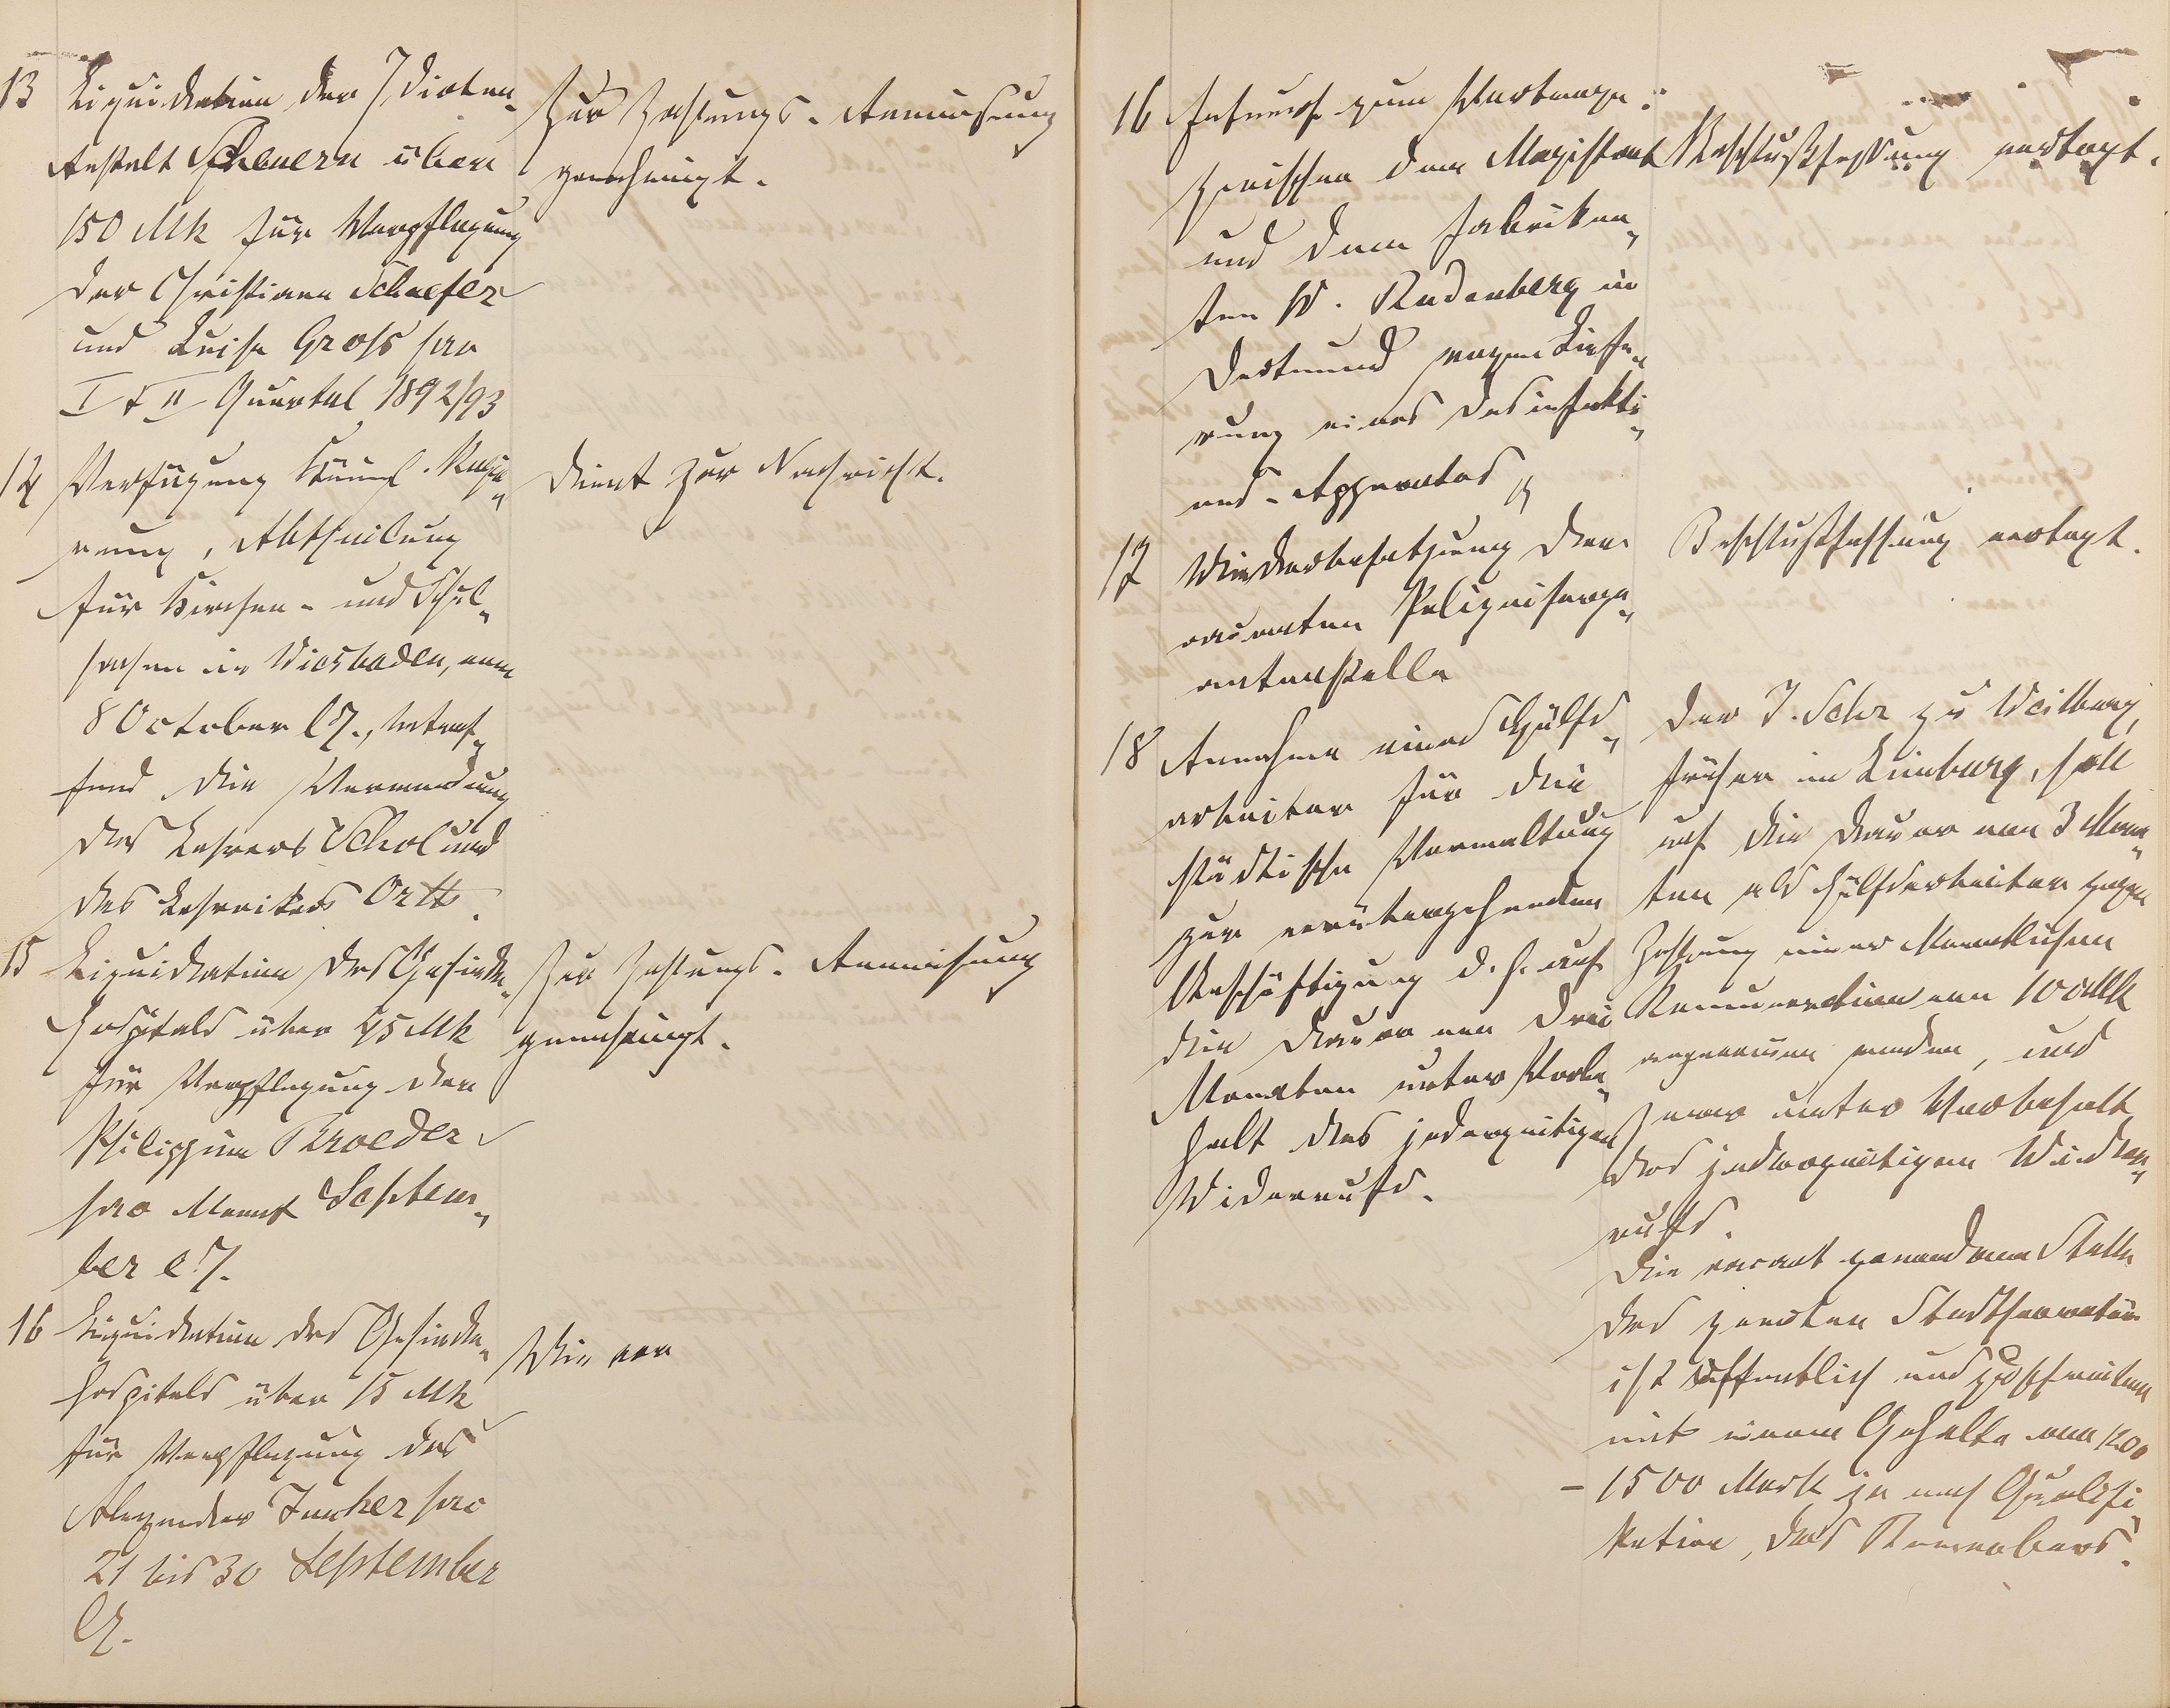 13 Liquidation der Idioten-
Anstalt Scheuern über
150 Mk für Verpflegung
der Christiane Schaefer
und Luise Groß pro
I & II Quartal 1892/93
Zur Zahlungs-Anweisung
genehmigt.
14 Verfügung Königl. Regie-
rung, Abtheilung
für Kirchen- und Schul-
sachen in Wiesbaden, vom
8 October l/J., betref-
fend die Verwendung
des Lehrers Schol und
des Lehrers Orth.
Dient zur Nachricht.
15 Liquidation des Gesinde-
hospitals über 45 Mk
für Verpflegung der
Philippine Broeder
pro Monat Septem-
ber l/J.
Zur Zahlungs-Anweisung
genehmigt.
16 Liquidation des Gesinde-
hospitals über 15 Mk
für Verpflegung des
Alexander Junker pro
21 bis 30 September
l/J.
Wie vor
16 Entwurf zum Vertrage
zwischen dem Magistrat
und dem Fabrikan-
ten W. Rudenberg in
Dortmund wegen Liefe-
rung eines Desinfekti-
ons-Apparates
Beschlußfassung vertagt.
17 Wiederbesetzung der
vacanten Polizeiserge-
antenstelle
Beschlußfassung vertagt.
18 Annahme eines Hülfs-
arbeiter für die
städtische Verwaltung
zur vorübergehenden
Beschäftigung d.h. auf
die Dauer von drei
Monaten unter Vorbe-
halt des jederzeitigen
Widerrufs.
Der J. Sehr zu Weilburg,
früher in Limburg, soll
auf die Dauer von 3 Mona-
ten als Hülfsarbeiter gegen
Zahlung einer Monatlichen
Remuneration von 100 Mk
angenommen werden, und
zwar unter Vorbehalt
des jederzeitigen Wider-
rufs.
Die vacant gewordene Stelle
des zweiten Stadtsecretärs
ist öffentlich auszuschreiben
mit einem Gehalte von 1200
– 1500 Mark je nach Qualifi-
kation, des Bewerbers.